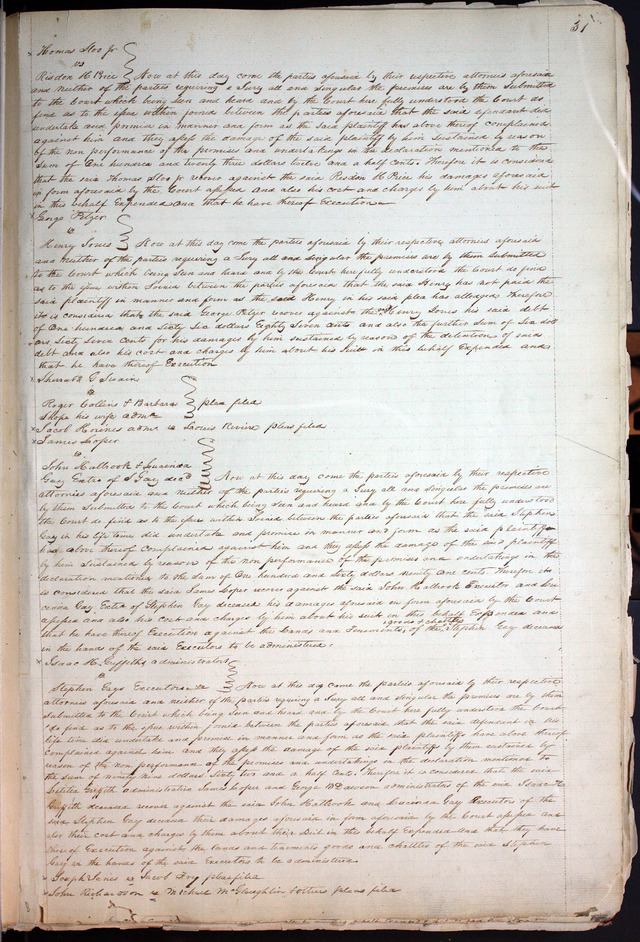 51
Thomas Sloo Jr
vs
Risdon H Price Now at this day come the parties aforesaid by their respective attornies aforesaid
and neither of the parties requiring a Jury all and singular the premises are by them Submitted
to the Court which being Seen and heard and by the Court here fully understood the Court do
find as to the issue within joined between the parties aforesaid that the said defendant did
undertake and promise in manner and form as the said plaintiff has above thereof complained
against him and they assess the damage of the said plaintiff by him Sustained by reason
of the non performance of the promises and undertakings in the declaration mentioned to the
Sum of One hundred and twenty three dollars twelve and a half cents. Therefore it is considered
that the said Thomas Sloo Jr recover against the said Risdon H Price his damages aforesaid
in form aforesaid by the Court assessed and also his cost and charges by him about his suit
in this behalf Expended and that he have thereof Execution
George Pilger
vs
Henry Jones Now at this day come the parties aforesaid by their respective attornies aforesaid
and neither of the parties requiring a Jury all and Singular the premises are by them Submitted
to the Court which being Seen and heard and by the Court here fully understood the Court do find
as to the issue within Joined between the parties aforesaid that the said Henry has not paid the
said plaintiff in manner and form as the said Henry in his said plea has alledged Therefore
it is considered that the said George Pilger recover against the Henry Jones his said debt
of One hundred and Sixty Six dollars Eighty Seven cents and also the further Sum of Six doll
ars Sixty Seven Cents for his damages by him sustained by reason of the detention of said
debt and also his cost and charges by him about his Suit in this behalf Expended and
that he have thereof Execution
Roger Collins & Barbara plea filed
his wife admx
Jacob Honnes admr vs Louis Revire pleas filed
James Loper
vs
John Hallbrook & Lucinda
Gay Extrs of S Gay decd Now at this day come the parties aforesaid by their respective
attornies aforesaid and neither of the parties requiring a Jury all and singular the premises are
by them Submitted to the Court which being Seen and heard and by the Court here fully understood
the Court do find as to the issue within Joined between the parties aforesaid that the said Stephen
Gay in his life time did undertake and promise in manner and form as the said plaintiff
has above thereof Complained against him and they assess the damage of the said plaintiff
by him Sustained by reason of the non performance of the promises and undertakings in the
declaration mentioned to the Sum of One hundred and Sixty dollars ninety one cents Therefore it
is considered that the said James Loper recover against the said John Hallbrook Executor and Lu
cinda Gay Extx of Stephen Gay deceased his damages aforesaid in form aforesaid by the Court
assessed and also his cost and charges by him about his suit in this behalf Expended and
goods & chattles
that he have thereof Execution against the Lands and Tenements, of the Stephen Gay deceased
in the hands of the said Executors to be administered.
Isaac H Griffiths administrators
vs
Stephen Gays Executors Now at this day came the parties aforesaid by their respective
attornies aforesaid and neither of the parties requiring a Jury all and singular the premises are by them
Submitted to the Court which being Seen and heard and by the Court here fully understood the Court
do find as to the issue within joined between the parties aforesaid that the said defendant in his
life time did undertake and promise in manner and form as the said plaintiffs have above thereof
complained against him and they assess the damage of the said plaintiffs by them sustained by
reason of the non performance of the promises and undertakings in the declaration mentioned to
the sum of ninety nine dollars Sixty two and a half Cents. Therefore it is considered that the said
Griffith administratrix James Loper and George administrators of the said Isaac H
Griffith deceased recover against the said John Hallbrook and Lucinda Gay Executors of the
said Stephen Gay deceased their damages aforesaid in form aforesaid by the Court assessed and
also their cost and charges by them about their Suit in this behalf Expended and that they have
thereof Execution against the lands and tenements goods and chattles of the said Stephen
Gay in the hands of the said Executors to be administered
Joseph Janes vs Jacob Fry pleas filed
John Richardson vs Michael McGlaughlin & others pleas filed